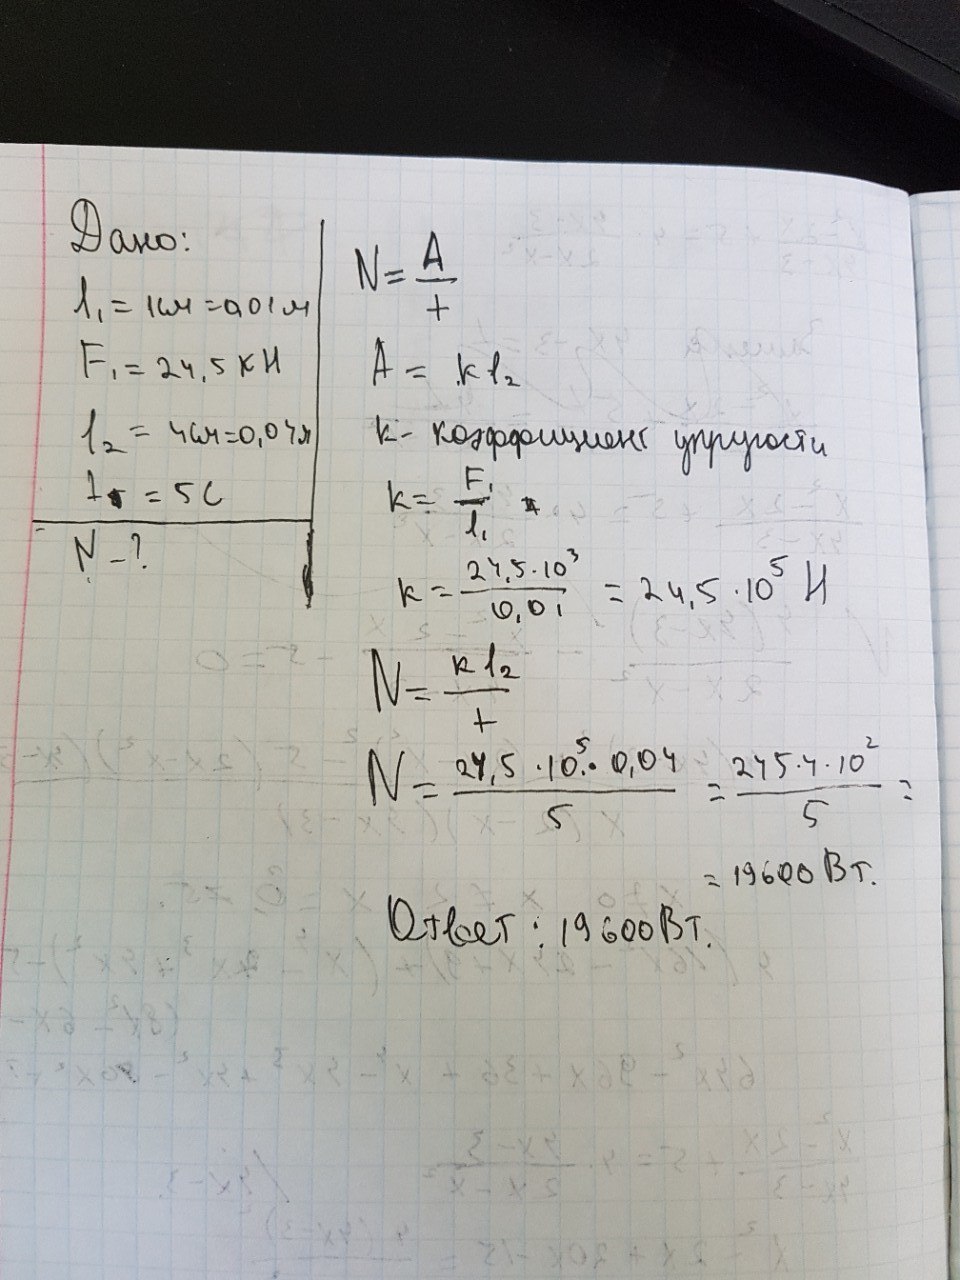 Дано:
l₁ = 1см = 0,01м
F₁ = 24,5 кН
l₂ = 4см = 0,04м
t = 5 с
N - ?
N = A/t
A = kl₂
k - коэффициент упругости
k = F₁/l₁
k = 24,5·10³/0,01 = 24,5·10⁵ Н
N = kl₂/t
N = 24,5·10⁵·0,04/5 = 245·4·10²/5 =
= 19600 Вт.
Ответ: 19600 Вт.